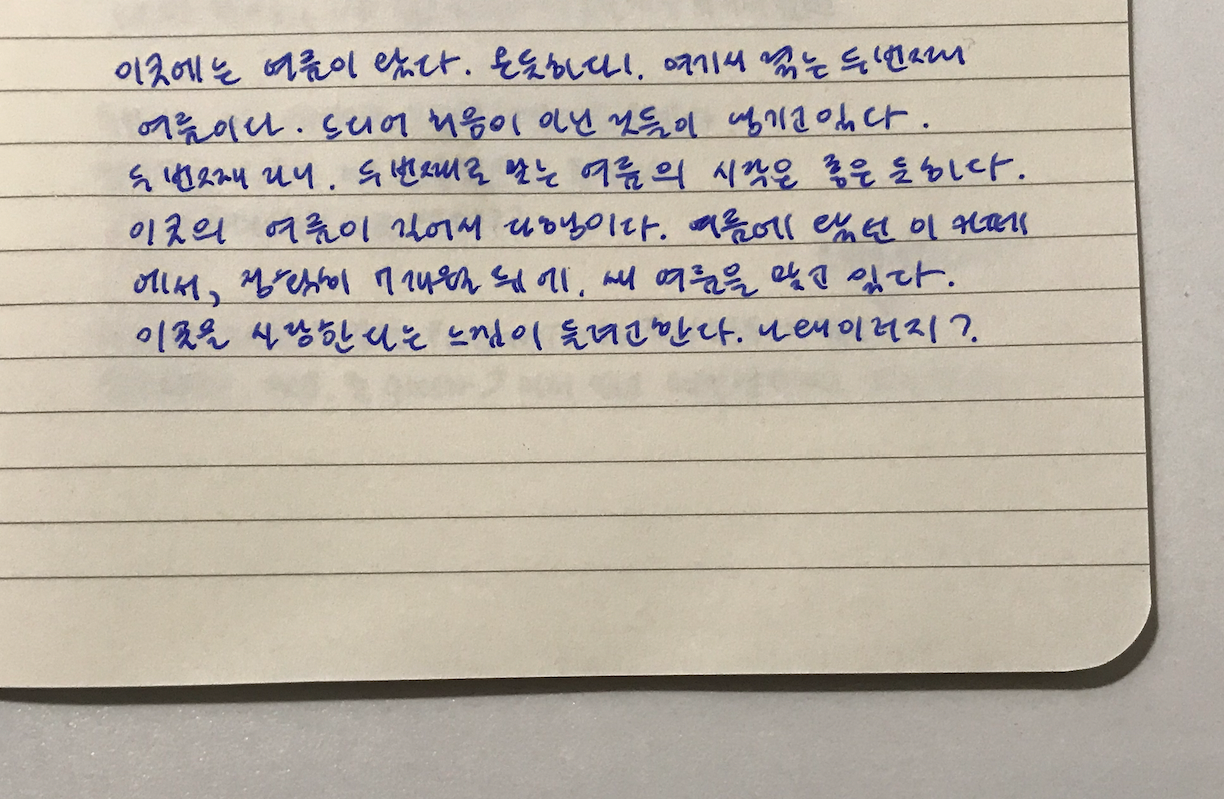 이곳에는 여름이 왔다. 온듯하다. 여기서 겪는 두번째
여름이다. 드디어 처음이 아닌 것들이 생기고있다.
두번째라니. 두번째로 맞는 여름의 시작은 좋은 듯하다.
이곳의 여름이 길어서 다행이다. 여름에 왔던 이 카페
에서, 정확히 7개월 뒤에, 새 여름을 맞고 있다.
이곳을 사랑한다는 느낌이 들려고한다. 나 왜이러지?